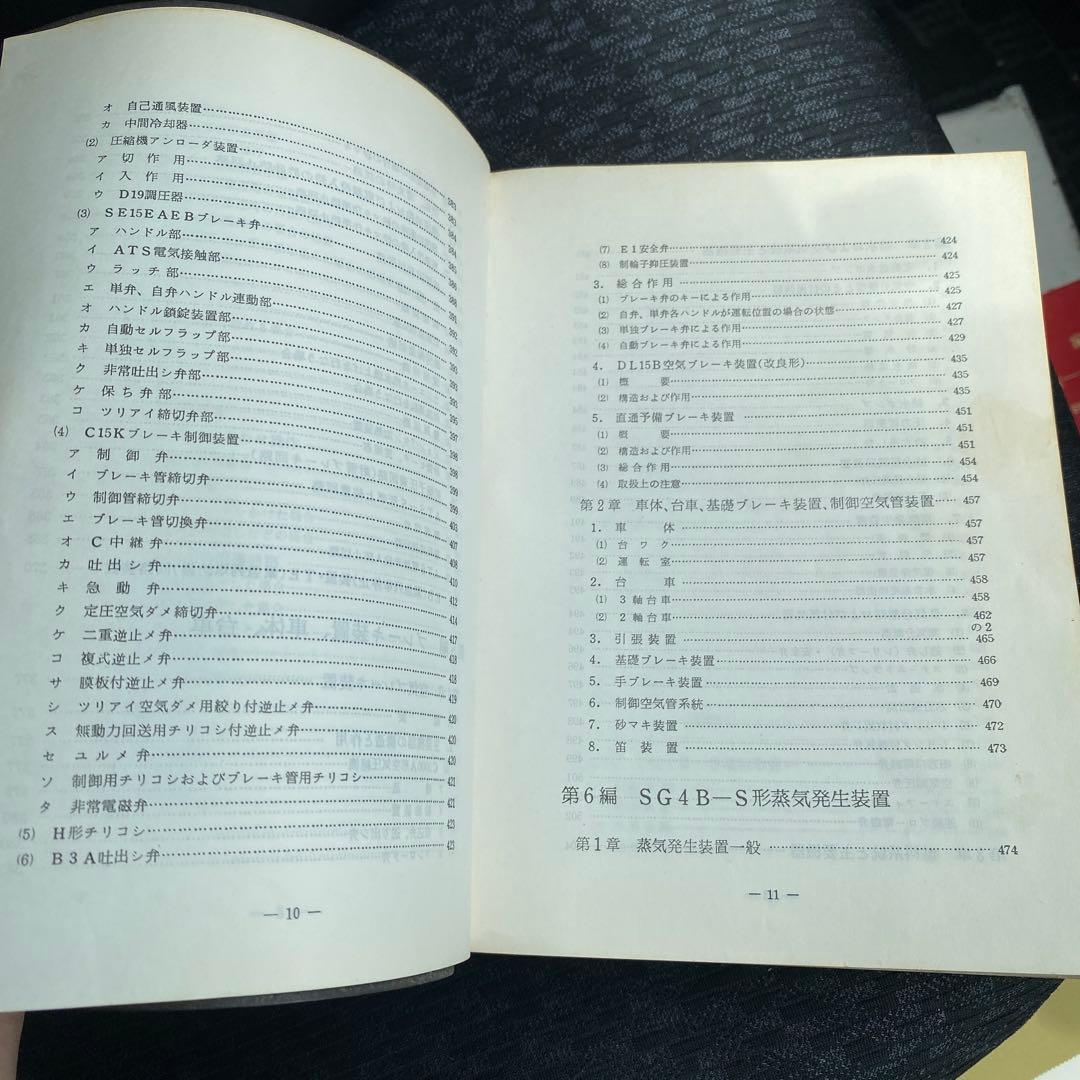 オ 自己通風装置……383
カ 中間冷却器……383
(2) 圧縮機アンローダ装置……384
ア 切作用……384
イ 入作用……385
ウ D19調圧器
(3) SE15EAEBブレーキ弁……388
ア ハンドル部
イ ATS電気接触部……392
ウ ラッチ部……392
エ 単弁、自弁ハンドル連動部……393
オ ハンドル鎖錠装置部……393
カ 自動セルフラップ部……393
キ 単独セルフラップ部……395
ク 非常吐出シ弁部……397
ケ 保ち弁部……398
コ ツリアイ締切弁部……398
(4) C15Kブレーキ制御装置……399
ア 制御弁……399
イ ブレーキ管締切弁……403
ウ 制御管締切弁……407
エ ブレーキ管切換弁……408
オ C中継弁……410
カ 吐出シ弁……412
キ 急動弁……414
ク 定圧空気ダメ締切弁……417
ケ 二重逆止メ弁……418
コ 複式逆止メ弁……418
サ 膜板付逆止メ弁……419
シ ツリアイ空気ダメ用絞り付逆止メ弁……420
ス 無動力回送用チリコシ付逆止メ弁……420
セ ユルメ弁……420
ソ 制御用チリコシおよびブレーキ管用チリコシ……421
タ 非常電磁弁……421
(5) H形チリコシ……423
(6) B3A吐出シ弁……423
— 10 —
(7) E1安全弁……424
(8) 制輪子抑圧装置……424
3. 総合作用……425
(1) ブレーキ弁のキーによる作用……425
(2) 自弁、単弁各ハンドルが運転位置の場合の状態……427
(3) 単独ブレーキ弁による作用……427
(4) 自動ブレーキ弁による作用……429
4. DL15B空気ブレーキ装置(改良形)……435
(1) 概要……435
(2) 構造および作用……435
5. 直通予備ブレーキ装置……451
(1) 概要……451
(2) 構造および作用……451
(3) 総合作用……454
(4) 取扱上の注意……454
第2章 車体、台車、基礎ブレーキ装置、制御空気管装置……457
1. 車体……457
(1) 台ワク……457
(2) 運転室……457
2. 台車……458
(1) 3軸台車……458
(2) 2軸台車……462の2
3. 引張装置……465
4. 基礎ブレーキ装置……466
5. 手ブレーキ装置……469
6. 制御空気管系統……470
7. 砂マキ装置……472
8. 笛装置……473
第6編 SG4B—S形蒸気発生装置
第1章 蒸気発生装置一般……474
— 11 —